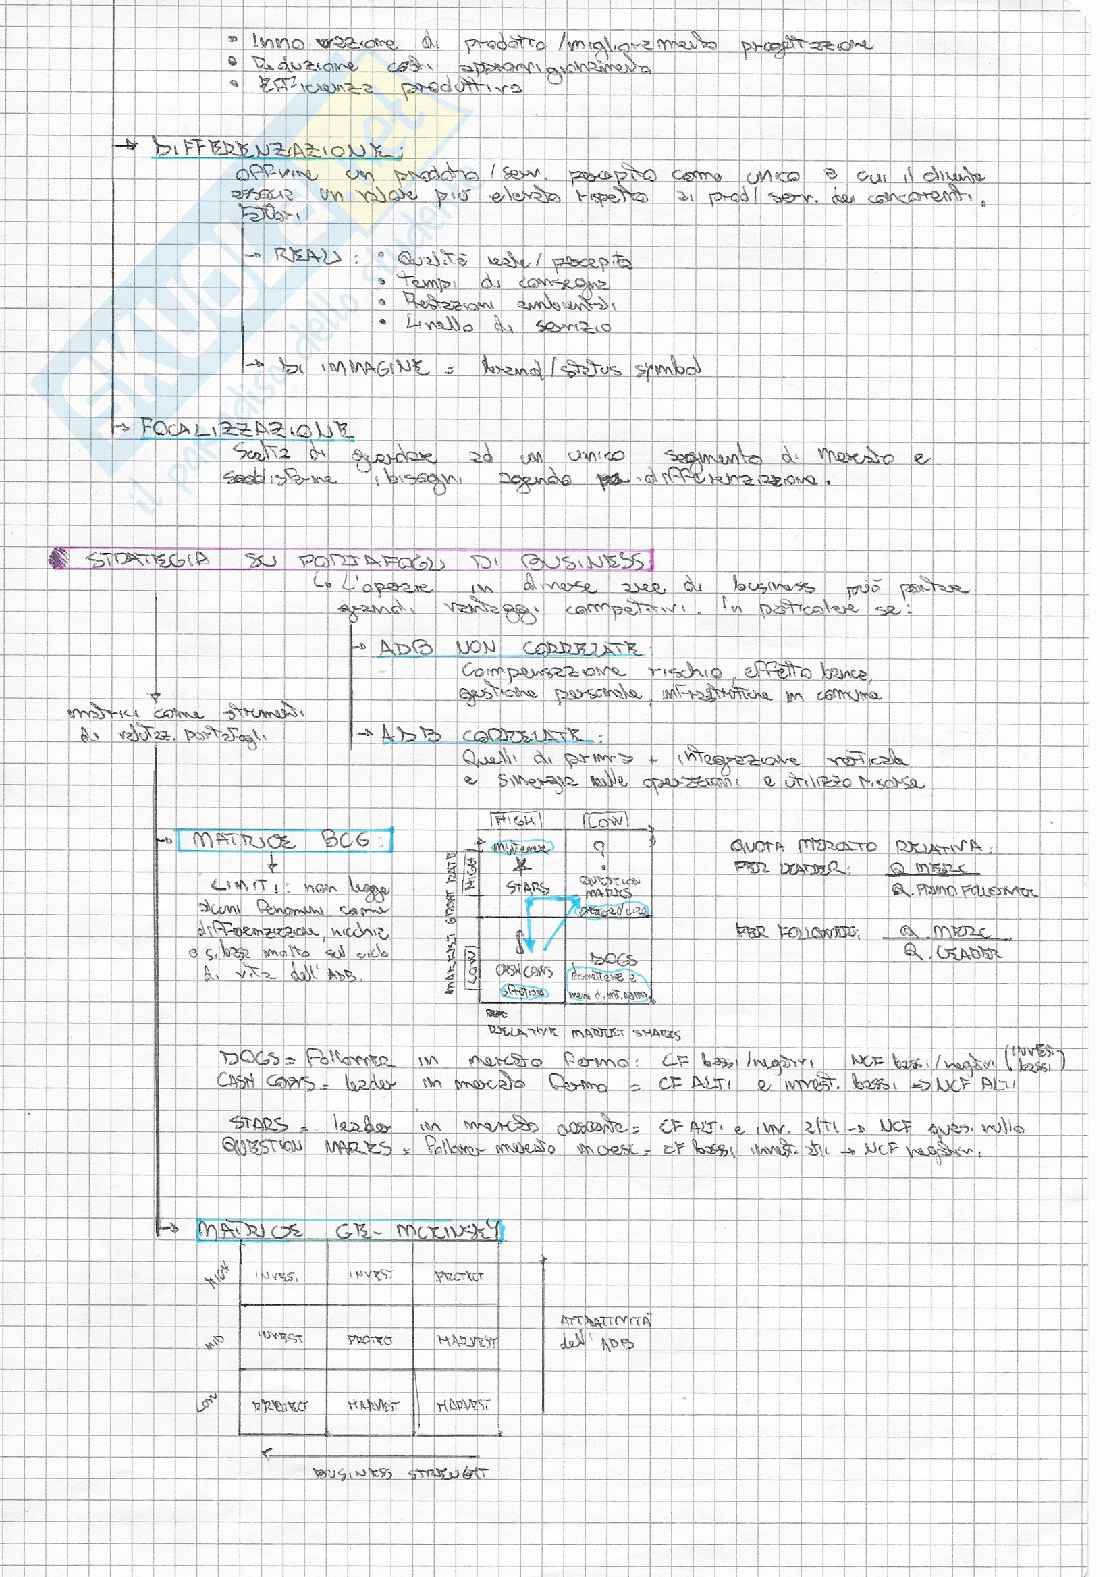 • Innovazione di prodotto/miglioramento progettazione
• Riduzione costi approvvigionamento
• Efficienza produttiva
→ DIFFERENZIAZIONE:
offrire un prodotto/serv. percepito come unico e cui il cliente
un valore più elevato rispetto ai prod/serv. dei concorrenti.
fattori
→ REALI: • Qualità reale/percepita
• Tempi di consegna
• Prestazioni ambientali
• Livello di servizio
→ DI IMMAGINE = brand/status symbol
→ FOCALIZZAZIONE
Scelta di guardare ad un unico segmento di mercato e
soddisfarne i bisogni agendo di differenziazione.
STRATEGIA SU PORTAFOGLI DI BUSINESS
↳ L'operare in diverse aree di business può portare
grandi vantaggi competitivi. In particolare se:
→ ADB NON CORRELATE
Compensazione rischio, effetto banca,
gestione personale, infrastrutture in comune
matrici come strumenti
di valutaz. portafogli
→ ADB CORRELATE:
Quelli di prima + integrazione verticale
e sinergia nelle operazioni e utilizzo risorse
→ MATRICE BCG:
LIMITI: non legge
alcuni fenomeni come
differenziazione, nicchie
o si basa molto sul ciclo
di vita dell'ADB.
HIGH LOW
HIGH
LOW
mantenere
STARS
?
QUESTION
MARKS
CASH COWS
DOGS
RELATIVE MARKET SHARES
QUOTA MERCATO RELATIVA:
PER LEADER: Q. MERC
Q. PRIMO FOLLOWER
PER FOLLOWER: Q. MERC
Q. LEADER
DOGS = Follower in mercato fermo: CF bassi/negativi NCF bassi/negativi (INVES. bassi)
CASH COWS = leader in mercato fermo = CF ALTI e invest. bassi → NCF ALTI
STARS = leader in mercato crescente = CF ALTI e inv. alti → NCF quasi nullo
QUESTION MARKS = Follower mercato in cresc = CF bassi invest. alti → NCF negativi.
→ MATRICE GE-MCKINSEY
HIGH INVEST INVEST PROTECT
MID INVEST PROTECT HARVEST
LOW PROTECT HARVEST HARVEST
ATTRATTIVITÀ
dell'ADB
BUSINESS STRENGHT